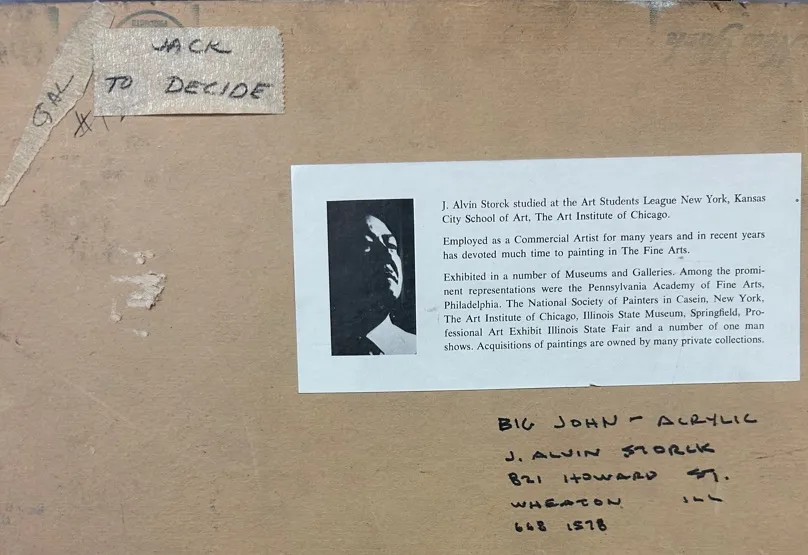 JACK
TO DECIDE
GAL
J. Alvin Storck studied at the Art Students League New York, Kansas
City School of Art, The Art Institute of Chicago.
Employed as a Commercial Artist for many years and in recent years
has devoted much time to painting in The Fine Arts.
Exhibited in a number of Museums and Galleries. Among the promi-
nent representations were the Pennsylvania Academy of Fine Arts,
Philadelphia. The National Society of Painters in Casein, New York,
The Art Institute of Chicago, Illinois State Museum, Springfield, Pro-
fessional Art Exhibit Illinois State Fair and a number of one man
shows. Acquisitions of paintings are owned by many private collections.
BIG JOHN – ACRYLIC
J. ALVIN STORCK
821 HOWARD ST.
WHEATON ILL
668 1578